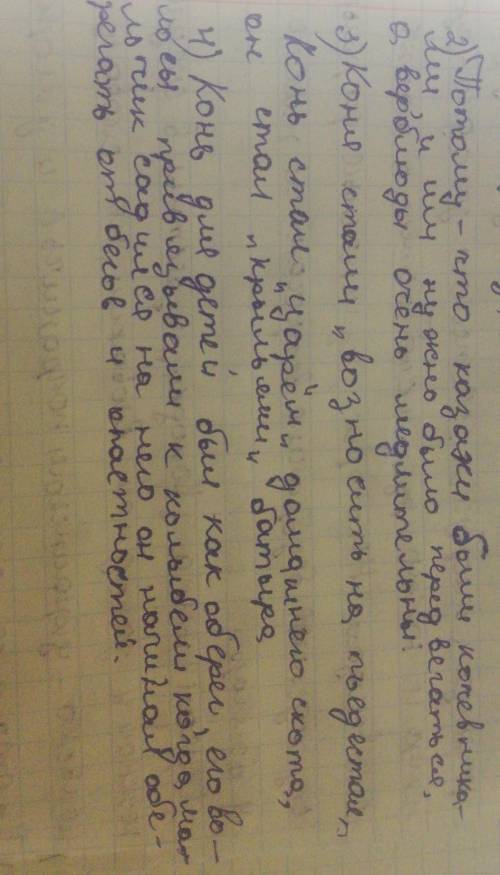 2) Потому-что казахи были кочевника-
ми и им нужно было перед вегаться,
а верблюды очень медлительны.
3) Коня стали „возносить на пьедестал„.
Конь стал „царём„ домашнего скота,
он стал „крыльями„ батыра
4) Конь для детей был как оберег, его во-
лосы привязывали к колыбели когда мал
льчик садился на него он начинал обе-
регать от бегов и опастностей.